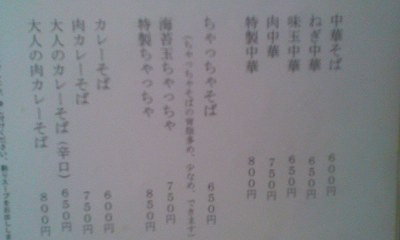 中華そば 600円
ねぎ中華 650円
味玉中華 650円
肉中華 750円
特製中華 800円
ちゃっちゃそば 650円
(ちゃっちゃそばの背脂多め、少なめ、できます)
海苔玉ちゃっちゃ 750円
特製ちゃっちゃ 850円
カレーそば 600円
肉カレーそば 750円
大人のカレーそば(辛口) 650円
大人の肉カレーそば 800円